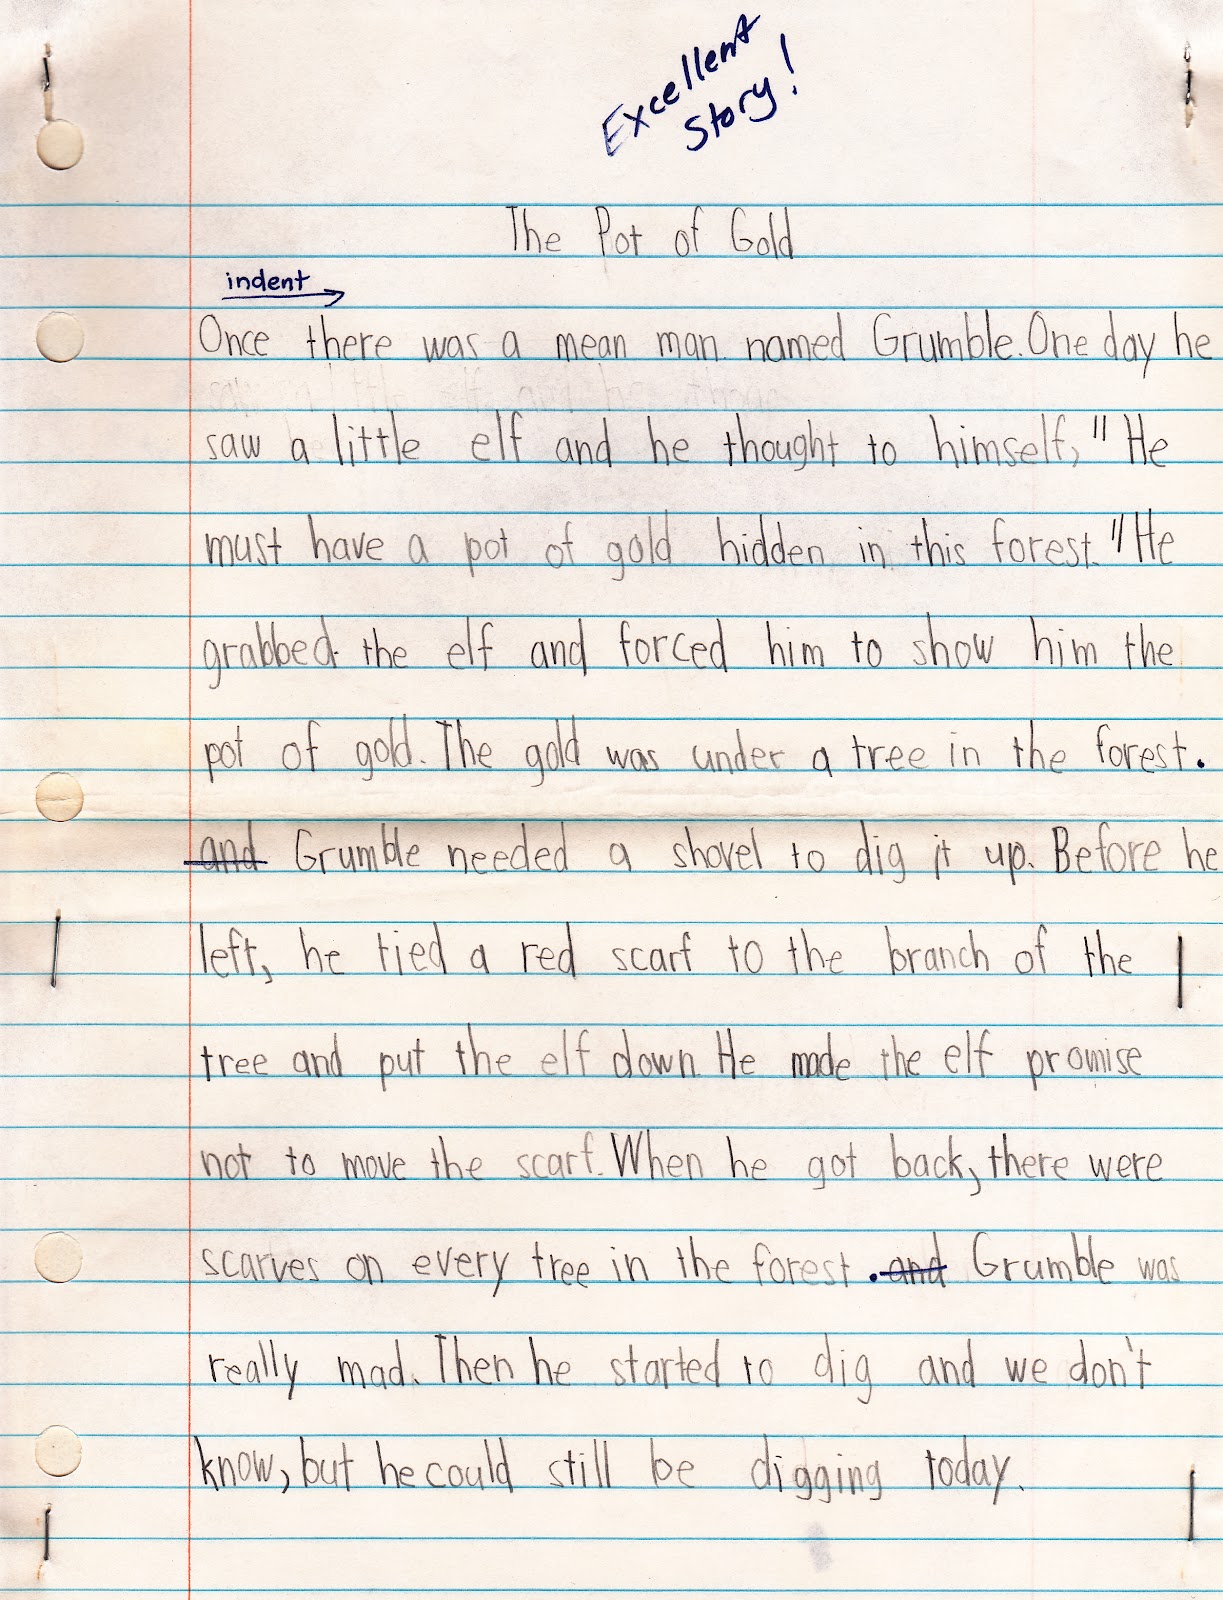 Excellent
Story!
The Pot of Gold
indent
Once there was a mean man named Grumble. One day he
saw a little elf and he thought to himself, "He
must have a pot of gold hidden in this forest. "He
grabbed the elf and forced him to show him the
pot of gold. The gold was under a tree in the forest.
and Grumble needed a shovel to dig it up. Before he
left, he tied a red scarf to the branch of the
tree and put the elf down. He made the elf promise
not to move the scarf. When he got back, there were
scarves on every tree in the forest . and Grumble was
really mad. Then he started to dig and we don't
know, but he could still be digging today.